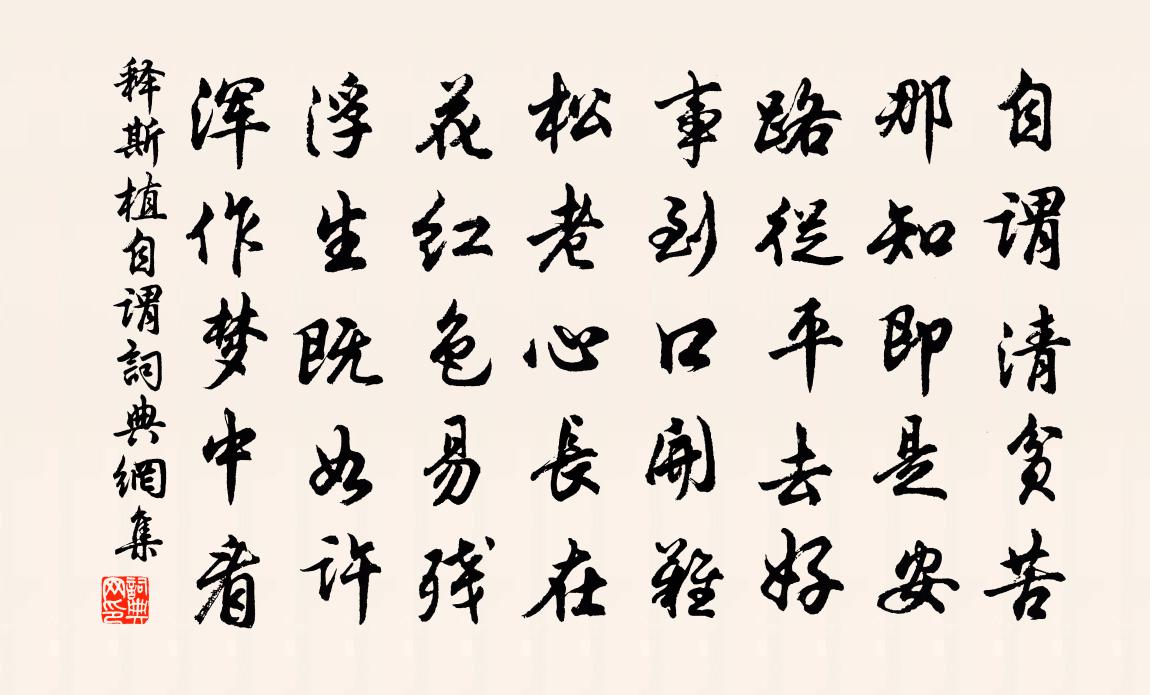 自谓清贫苦
那知即是安
路従平去好
事到口開難
松老心長在
花红色易残
浮生既如许
浑作梦中看
释斯植自谓詞典網集
詞典网印